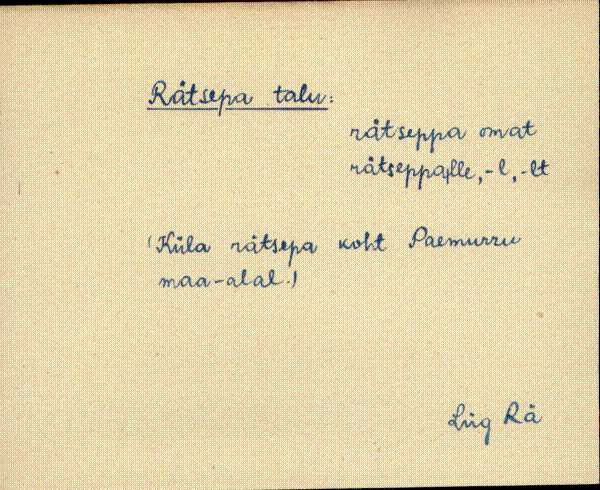 Rätsepa talu:
rätseppa omat
rätseppalle, -l, -lt
(Küla rätsepa koht Paemurru
maa-alal.)
Lüg Rä